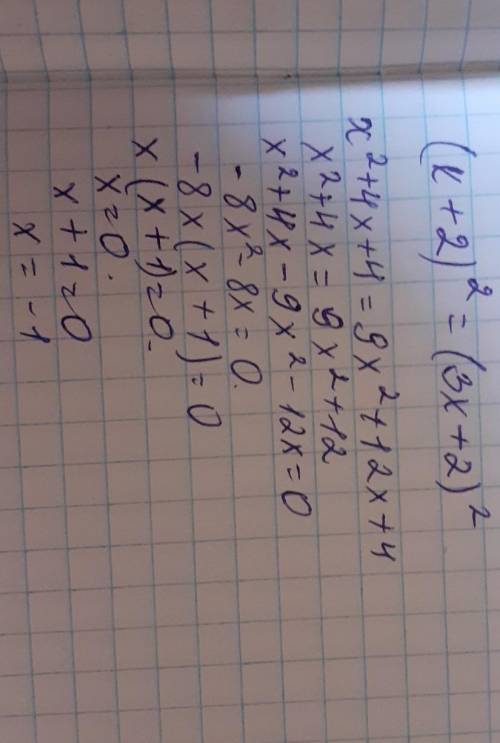 (x+2)² = (3x+2)²
x²+4x+4 = 9x²+12x+4
x²+4x = 9x²+12
x²+4x-9x²-12x=0
-8x²-8x=0.
-8x(x+1)=0
x(x+1)=0.
x=0.
x+1=0
x=-1